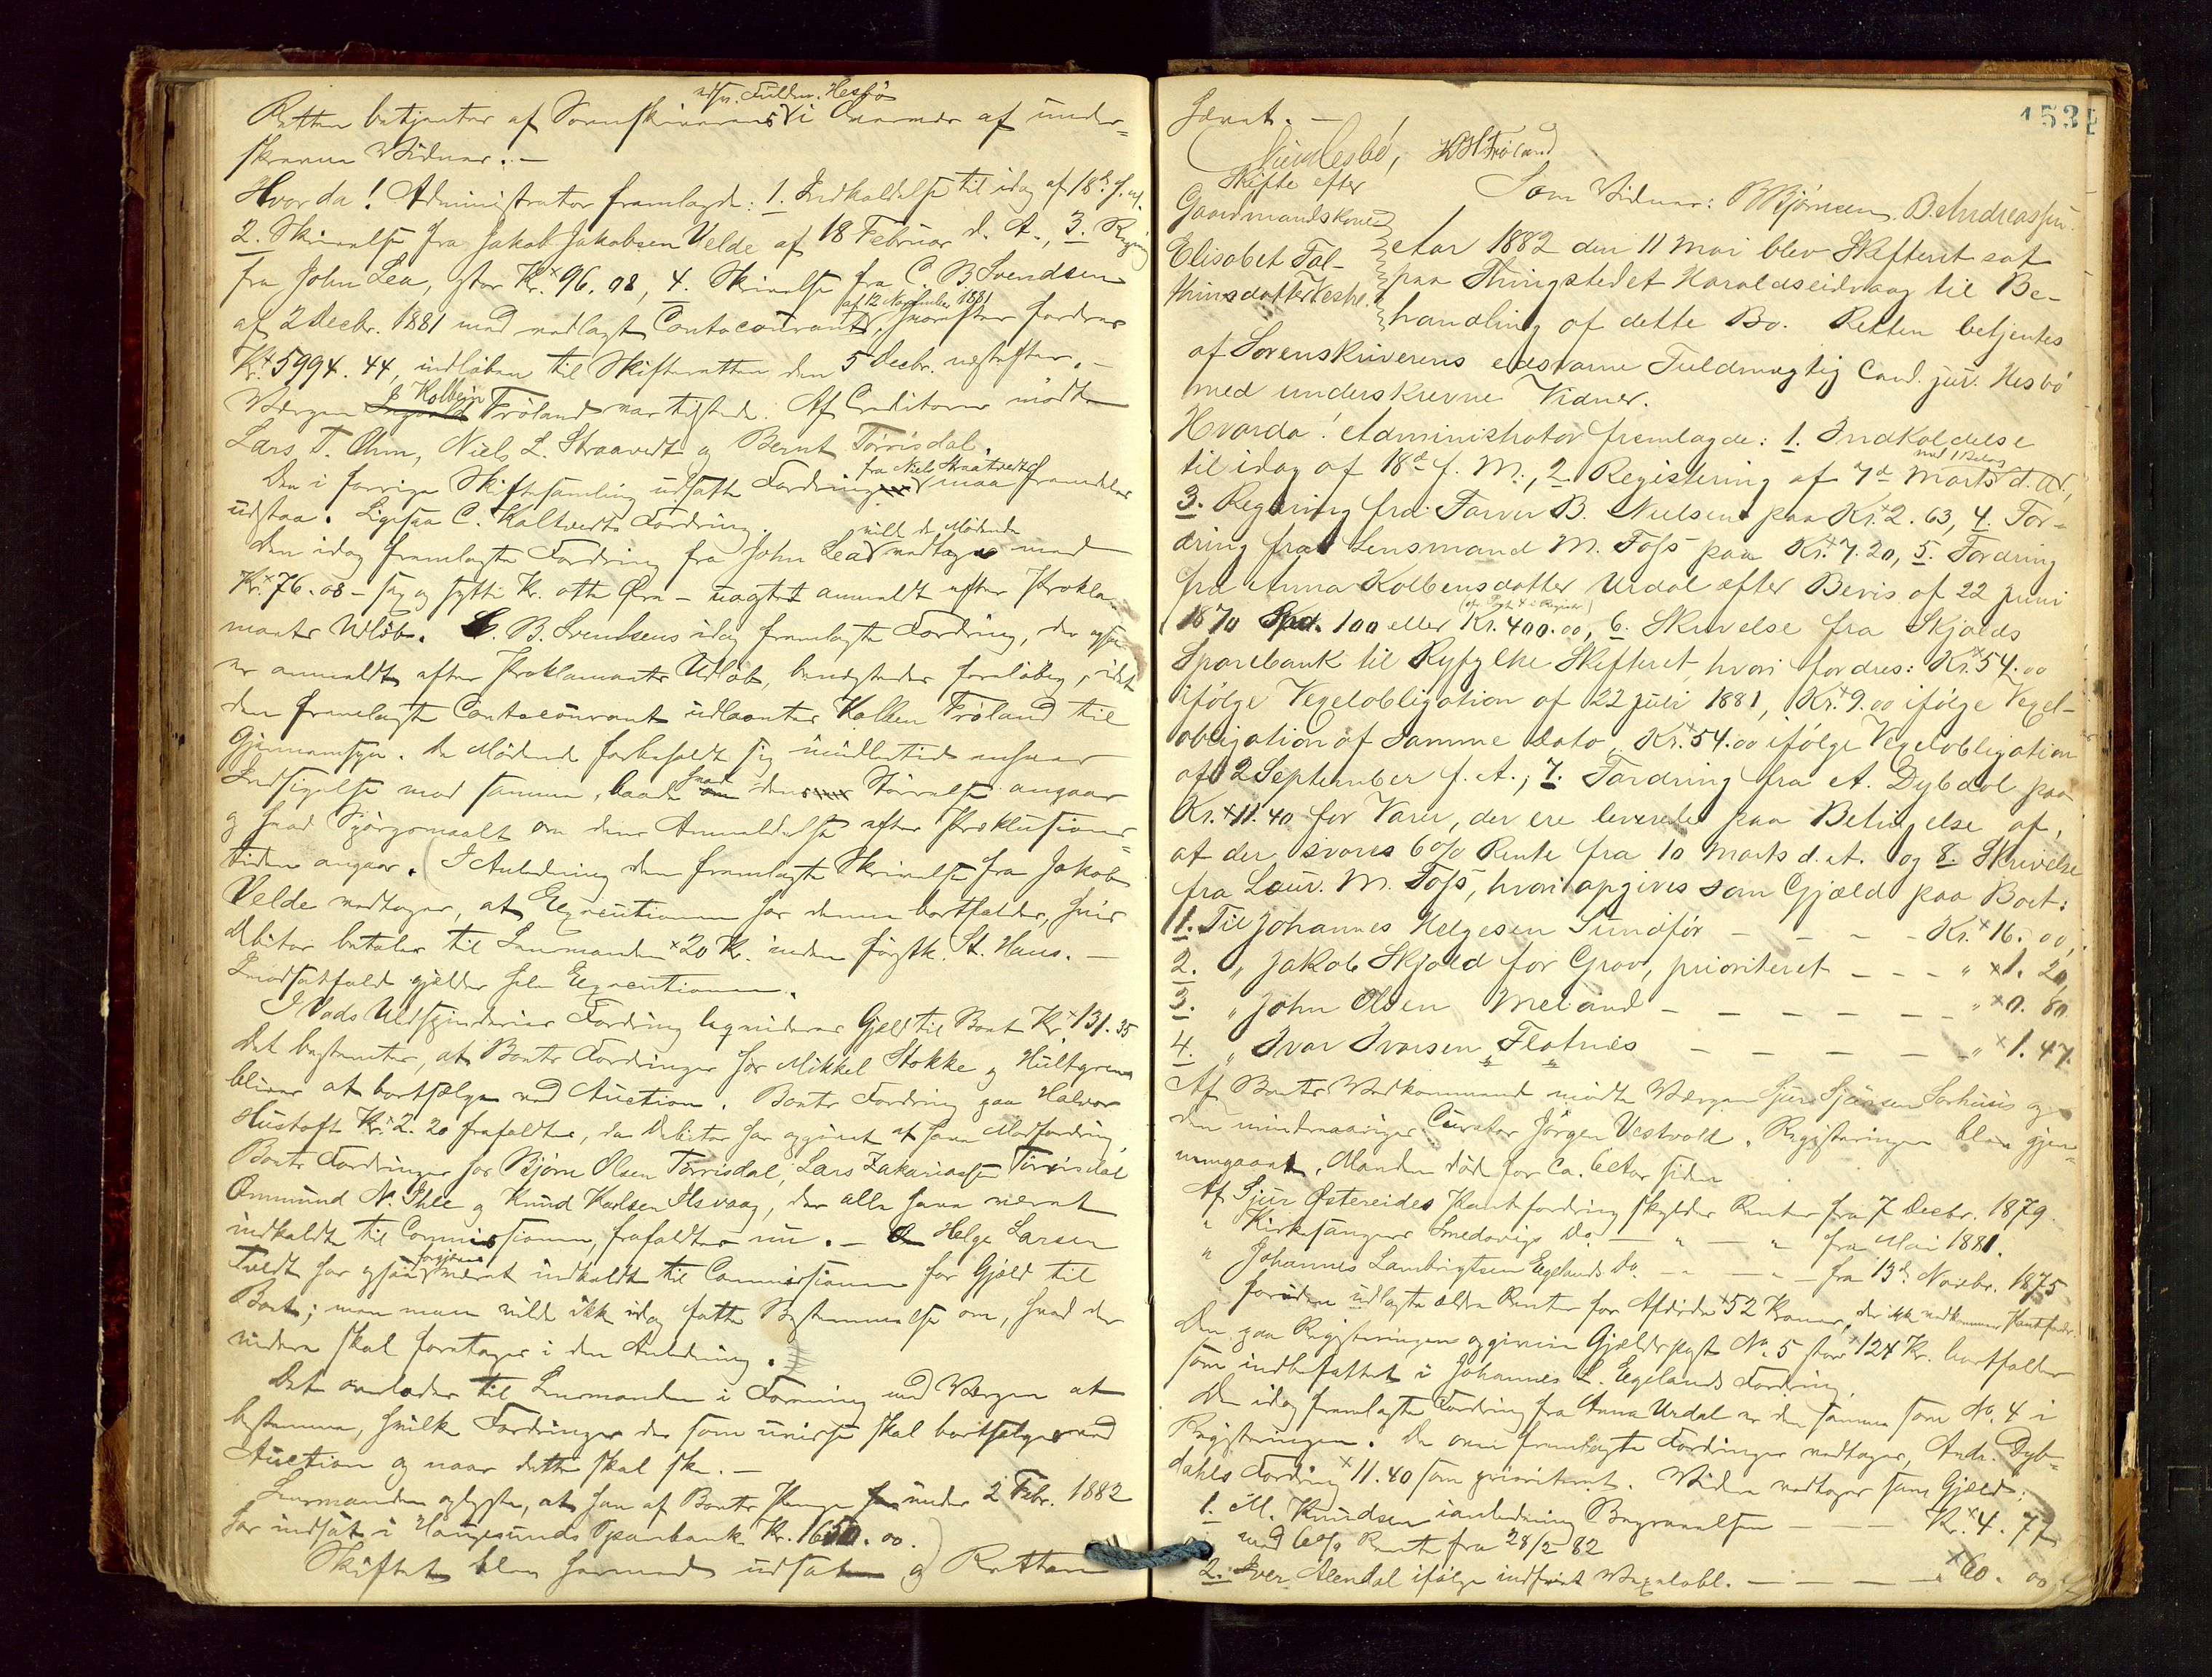 edsv. Fuldm. Hesbö
Retten betjentes af Sorenskriverens i Nærvær af under-
skrevne Vidner. –
Hvorda! Administrator fremlagde: 1. Indkaldelse til idag af 18de f. M.
2. Skrivelse fra Jakob Jakobsen Velde af 18 Februar d. A., 3. Regning
fra John Lea, stor Kr. 96.08, 4. Skrivelse fra C. B. Svendsen
af 12 November 1881
af 2 Decbr. 1881 med vedlagt Contocourant, hvorefter fordres
Kr. 5994.44, indløben til Skifteretten den 5 Decbr. næstefter. –
Kolbein
Værgen Fröland var tilstede. Af Creditorer mödte
Lars T. Ohm, Niels L. Straavedt og Bernt Törrisdal.
fra Niels Straatvedt
Den i forrige Skiftesamling udsatte Fordring maa fremdeles
udstaa. Ligesaa C. Kaltvedts Fordring.
vilde de Mödende
Den idag fremlagte Fordring fra John Lea vedtage med
Kr. 76.08 – sex og sytti Kr. otte Øre – uagtet anmeldt efter Prokla-
maets Udlöb. C. B. Svendsens idag fremlagte Fordring, der ogsaa
er anmeldt efter Proklamaets Udlöb, benegtedes foreløbig, idet
den fremlagte Contocourant udlaantes Kolben Fröland til
Gjennemsyn. De Mödende forbeholdt sig imidlertid enhver
Indsigelse mod samme, baade hvad dens Størrelse angaar
og hvad Spörgsmaalet om dens Anmeldelse efter Preklusions-
tiden angaar. I Anledning den fremlagte Skrivelse fra Jakob
Velde vedtages, at Executionen for denne bortfalder, hvis
Debitor betaler til Lensmanden 20 Kr. inden førstk. St. Hans. –
I modsat fald gjelder hele Executionen.
I Vads Uldspinderies Fordring liquideres Gjeld til Boet Kr. 131.35
Det bestemtes, at Boets Fordringer hos Mikkel Stokke og Hultgren
bliver at bortsælge ved Auction. Boets Fordring paa Halvor
Hustoft Kr. 2.20 frafaldtes, da Debitor har opgivet at have Modfordring.
Boets Fordringer hos Bjørn Olsen Törrisdal, Lars Zakariassen Törrisdal
Ommund N. Ihle og Knud Karlsen Ilsvaag, der alle have været
indkaldt til Commissionen, frafaldtes nu. – Helge Larsen
forgjæves
Tvedt har ogsaa været indkaldt til Commissionen for Gjæld til
Boet; men man vilde ikke idag fatte Bestemmelse om, hvad der
videre skal foretages i den Anledning.
Det overlodes til Lensmanden i Forening med Værgen at
bestemme, hvilke Fordringer der som uvisse skal bortsælges ved
Auction og naar dette skal ske. –
Lensmanden oplyste, at han af Boets Penge under 2 Febr. 1882
har indsat i Haugesunds Sparebank Kr. 1650.00.
Skiftet blev hermed udsat og Retten
hævet. –
153
Hesbö, K H Fröland
Som Vidner: B Bjørnsen. D. Andreassen.
Skifte efter
Gaardmandskone
Elisabet Tal-
thinsdatter Vestre.
Aar 1882 den 11 Mai blev Skifteret sat
paa Thingstedet Haraldseidvaag til Be-
handling af dette Bo. Retten betjentes
af Sorenskriverens edsvorne Fuldmægtig Cand. jur. Hesbö
med underskrevne Vidner.
Hvorda! Administrator fremlagde: 1. Indkaldelse
med 1 Bilag
til idag af 18de f. M., 2. Registering af 7de Marts d. A.,
3. Regning fra Farver B. Nielsen paa Kr. 2.63, 4. For-
dring fra Lensmand M. Foss paa Kr. 7.20, 5. Fordring
fra Anna Kolbensdatter Urdal efter Bevis af 22 Juni
(cfr. Post 4 i Registr.)
1870 Spd. 100 eller Kr. 400.00, 6. Skrivelse fra Skjolds
Sparebank til Ryfylke Skifteret, hvori fordres: Kr. 54.00
ifølge Vexelobligation af 22 Juli 1881, Kr. 9.00 ifølge Vexel-
obligation af samme Dato, Kr. 54.00 ifølge Vexelobligation
af 2 September f. A., 7. Fordring fra A. Dybdal paa
Kr. 11.40 for Varer, der ere leverede paa Betingelse af,
at der svares 6% Rente fra 10 Marts d. A. og 8. Skrivelse
fra Laur. M. Foss, hvori opgives som Gjæld paa Boet:
1. Til Johannes Helgesen Sundför – – – – Kr. 16.00,
2. „ Jakob Skjold for Grav, prioriteret – – – „ 1.20
3. „ John Olsen Meland – – – – – – „ 0.80
4. „ Ivar Ivarsen Flotnes – – – – – „ 1.47.
Af Boets Vedkommende mödte Værgen Sjur Sjursen Sørhuus og
den mindreaariges Curator Jörgen Vestvold. Registeringen blev gjen-
nemgaaet. Manden död for ca. 6 Aar siden
Af Sjur Östereides Pantefordring skyldes Renter fra 7 Decbr. 1879.
„ Kirkesanger Smedsvigs Do. – „ – „ fra Mai 1881.
„ Johannes Lambrigtsen Egelands Do. – „ – „ – fra 13de Novbr. 1875
foruden udlagte ældre Renter for Afdöde 52 Kroner, der ikke vedkommer Pantefordr.
Den paa Registeringen opgivne Gjældspost No. 5 stor 124 Kr. bortfalder
som indbefattet i Johannes L. Egelands Fordring.
Den idag fremlagte Fordring fra Anna Urdal er den samme som No. 4 i
Registeringen. De oven fremlagte Fordringer vedtages, Andr. Dyb-
dahls Fordring 11.40 som prioriteret. Videre vedtages som Gjæld:
1. M. Knudsen ianledning Begravelsen – – – Kr. 4.77
med 6% Rente fra 28/2 82
2. Iver Alendal ifølge indfriet Vexelobl. – – – – „ 60.00